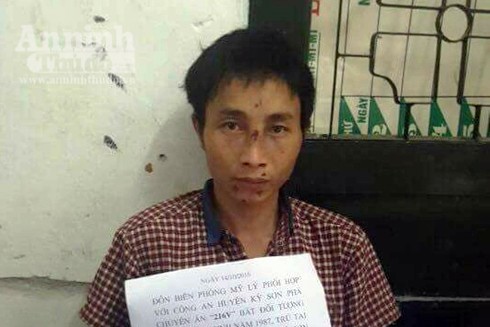 An ninh
Thủ đô
www.anninhthudo.vn
NGÀY
ĐỒN BIÊN PHÒNG MỸ LÝ PHỐI HỢP
VỚI CÔNG AN HUYỆN KỲ SƠN PHÁ
CHUYÊN ÁN: "216V" BẮT ĐỐI TƯỢNG
NĂM 1987, TRÚ TẠI
NGÀY